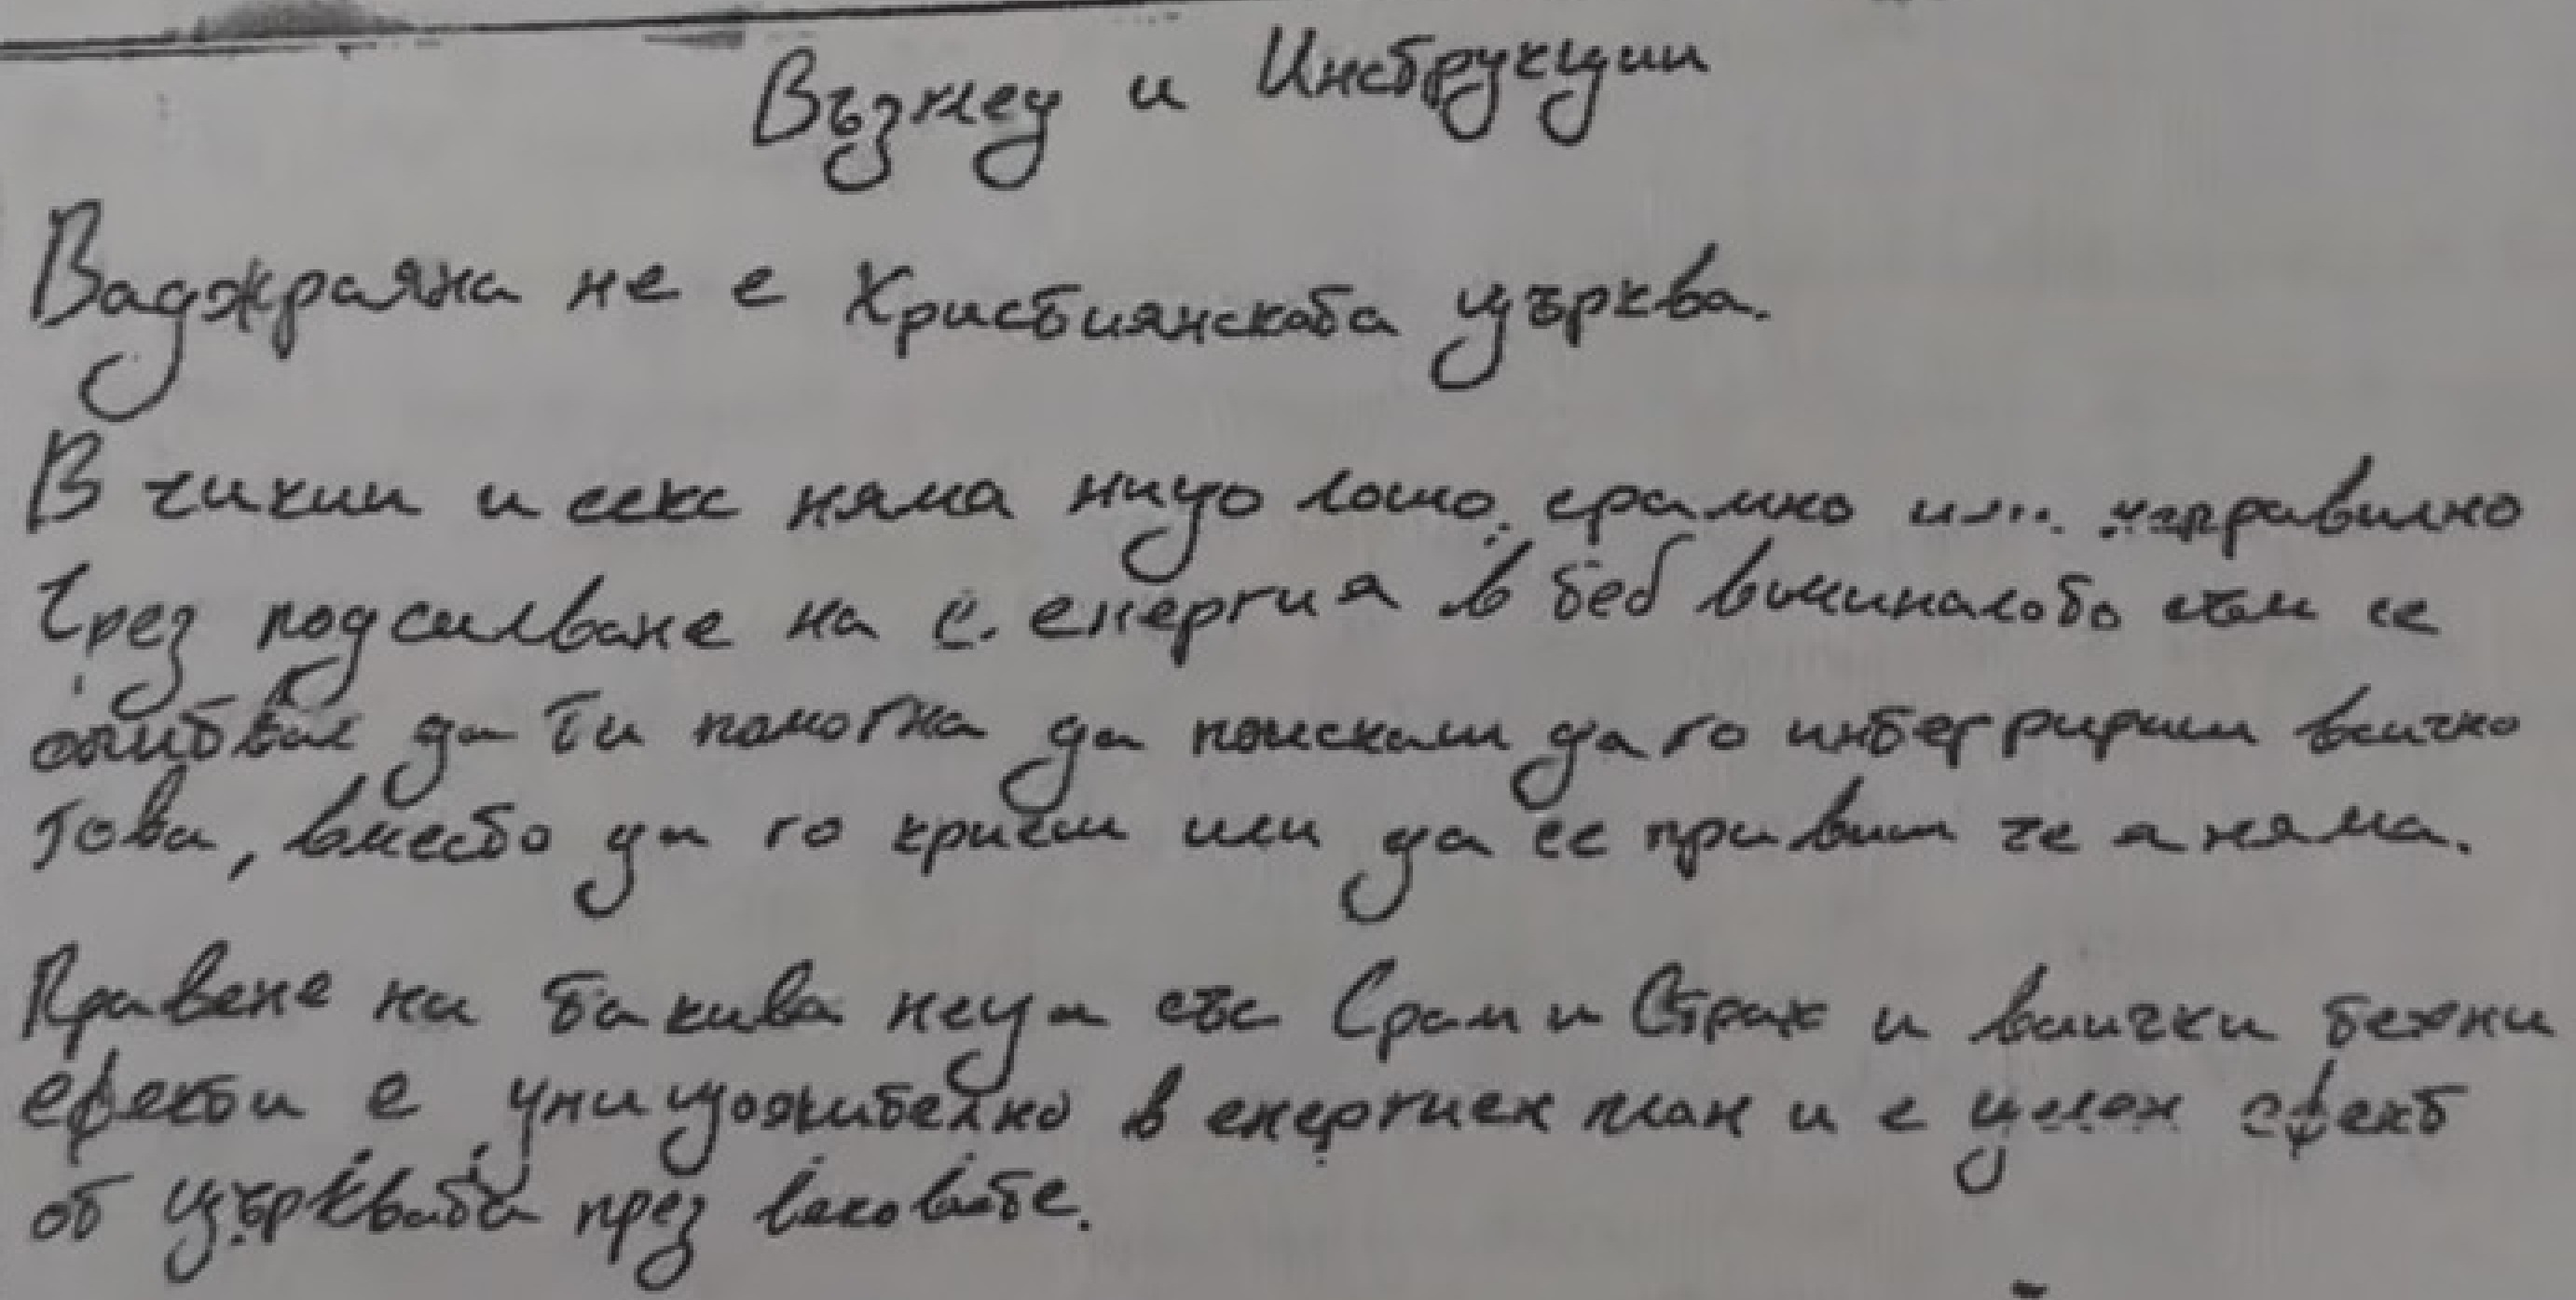 Възгледи и Инструкции
Ваджраяна не е Християнската църква.
В чикии и секс няма нищо лошо, срамно или неправилно
Чрез подсилване на с. енергия в теб винаги съм се
опитвал да ти помогна да поискаш да го интегрираш всичко
това, вместо да го криеш или да се правиш че я няма.
Правене на такива неща със Срам и Страх и всички техни
ефекти е унищожително в енергиен план и е целен ефект
от църквата през вековете.